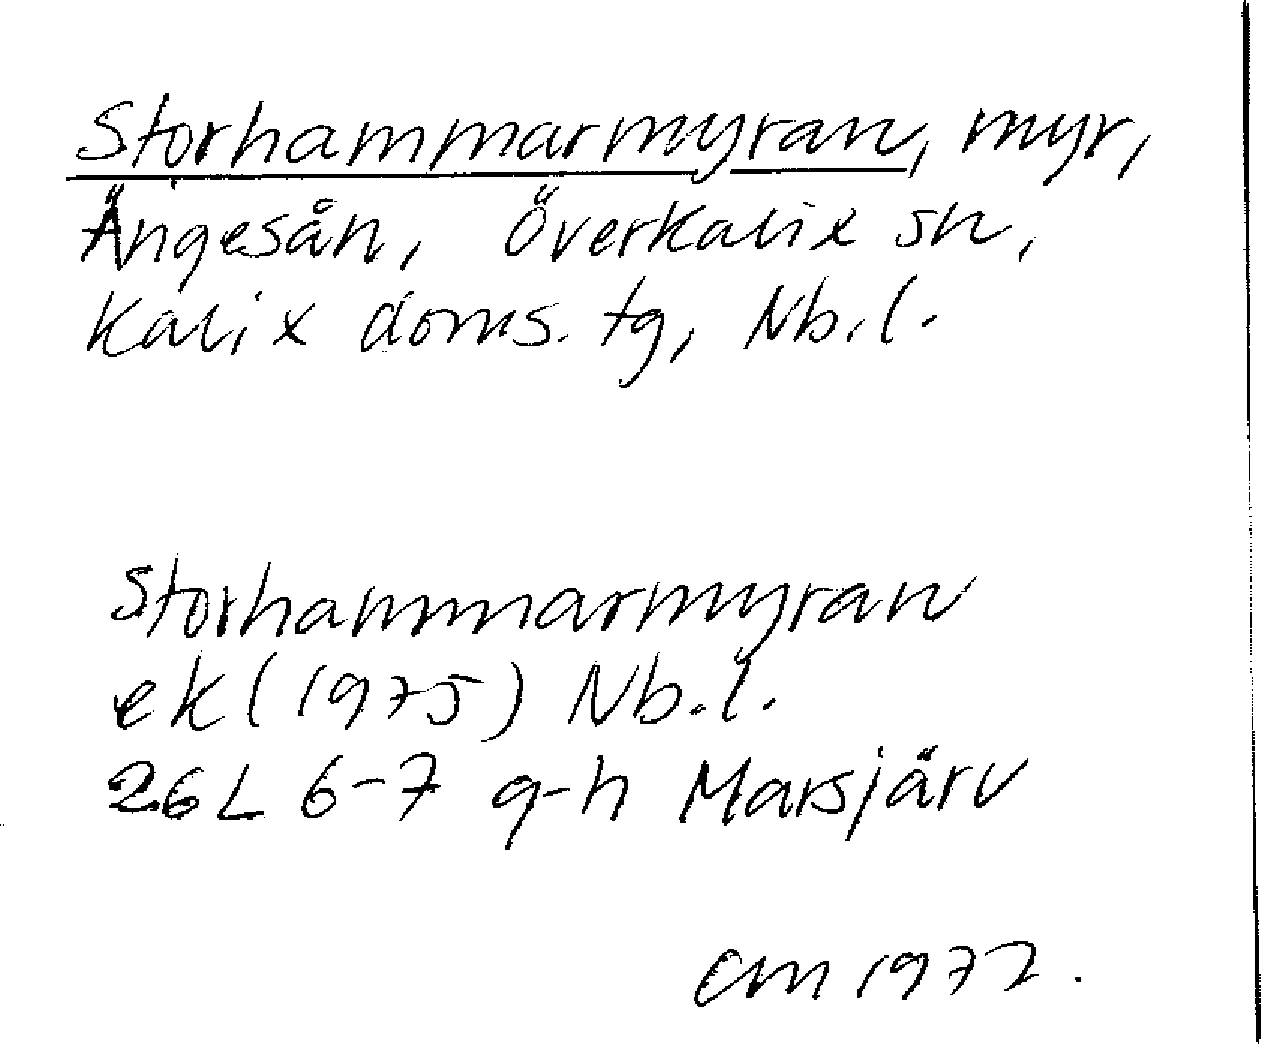 Storhammarmyran, myr,
Ängesån, Överkalix sn,
Kalix doms. tg, Nb.l.
Storhammarmyran
ek (1975) Nb.l.
26L 6-7 g-h Marsjärv
CM 1977.